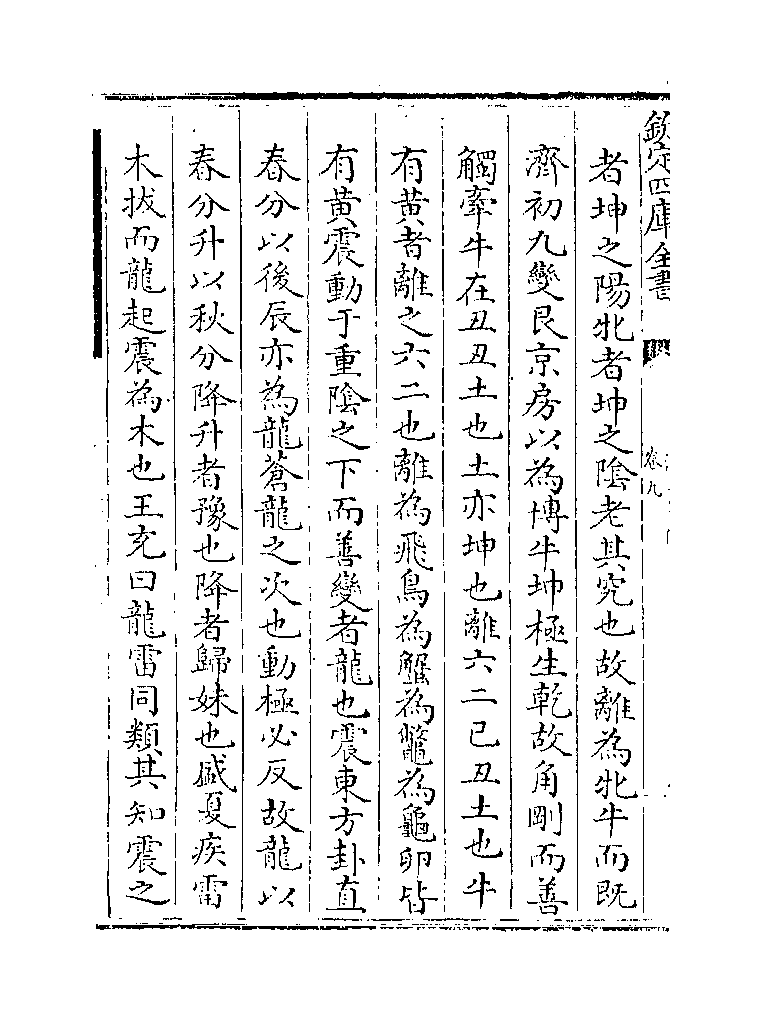 欽定四庫全書
卷九
者坤之陽牝者坤之陰老其究也故離為牝牛而既
濟初九變艮京房以為博牛坤極生乾故角剛而善
觸牽牛在丑丑土也土亦坤也離六二已丑土也牛
有黃者離之六二也離為飛鳥為蟹為鼈為龜卵皆
有黃震動于重陰之下而善變者龍也震東方卦直
春分以後辰亦為龍蒼龍之次也動極必反故龍以
春分升以秋分降升者豫也降者歸妹也盛夏疾雷
木拔而龍起震為木也王充曰龍雷同類其知震之